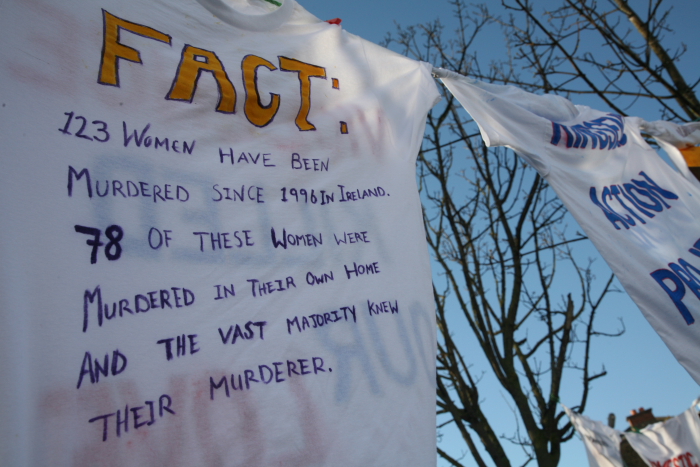 FACT:
123 WOMEN HAVE BEEN
MURDERED SINCE 1996 IN IRELAND.
78 OF THESE WOMEN WERE
MURDERED IN THEIR OWN HOME
AND THE VAST MAJORITY KNEW
THEIR MURDERER.
ACTION